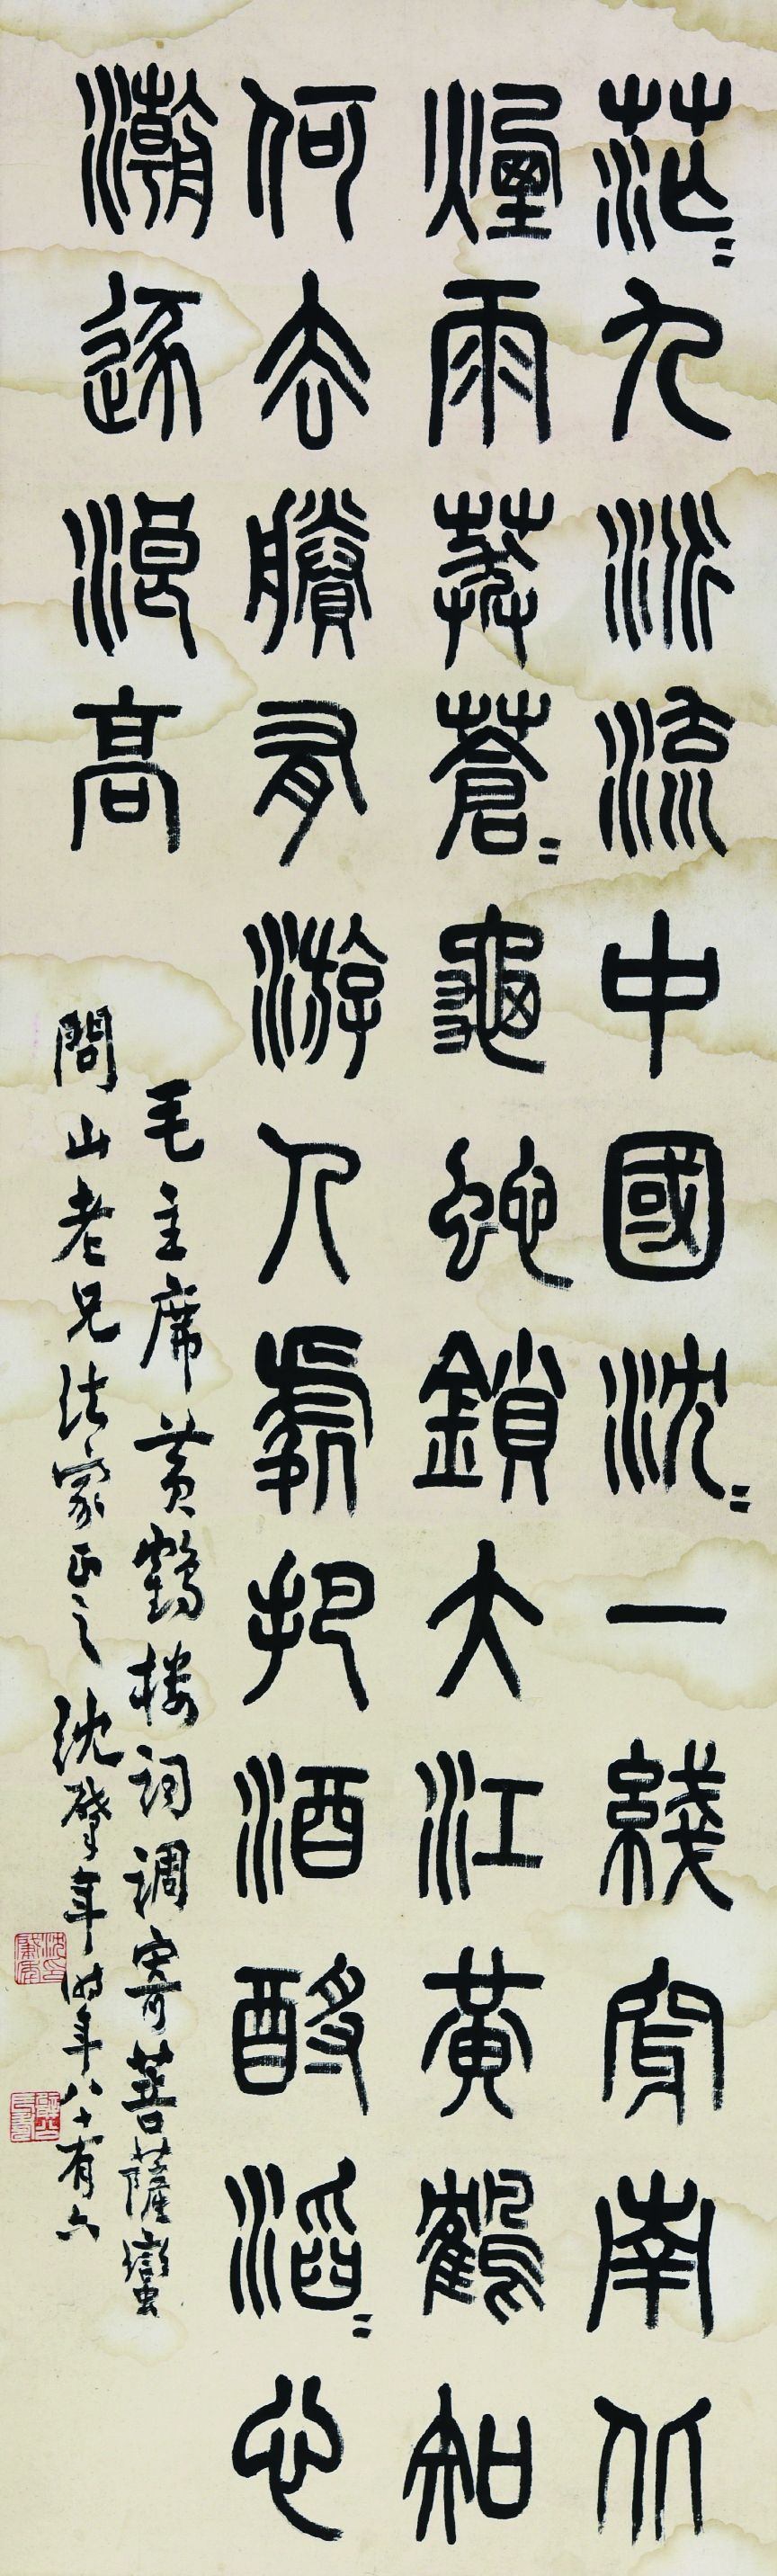 茫〻九派流中國沈〻一綫穿南北
煙雨莽蒼〻龜蛇鎖大江黃鶴知
何去賸有游人處把酒酹滔〻心
潮逐浪高
毛主席黄鶴楼詞調寄菩薩蠻
問山老兄法家正之沈肇年时年八十有六